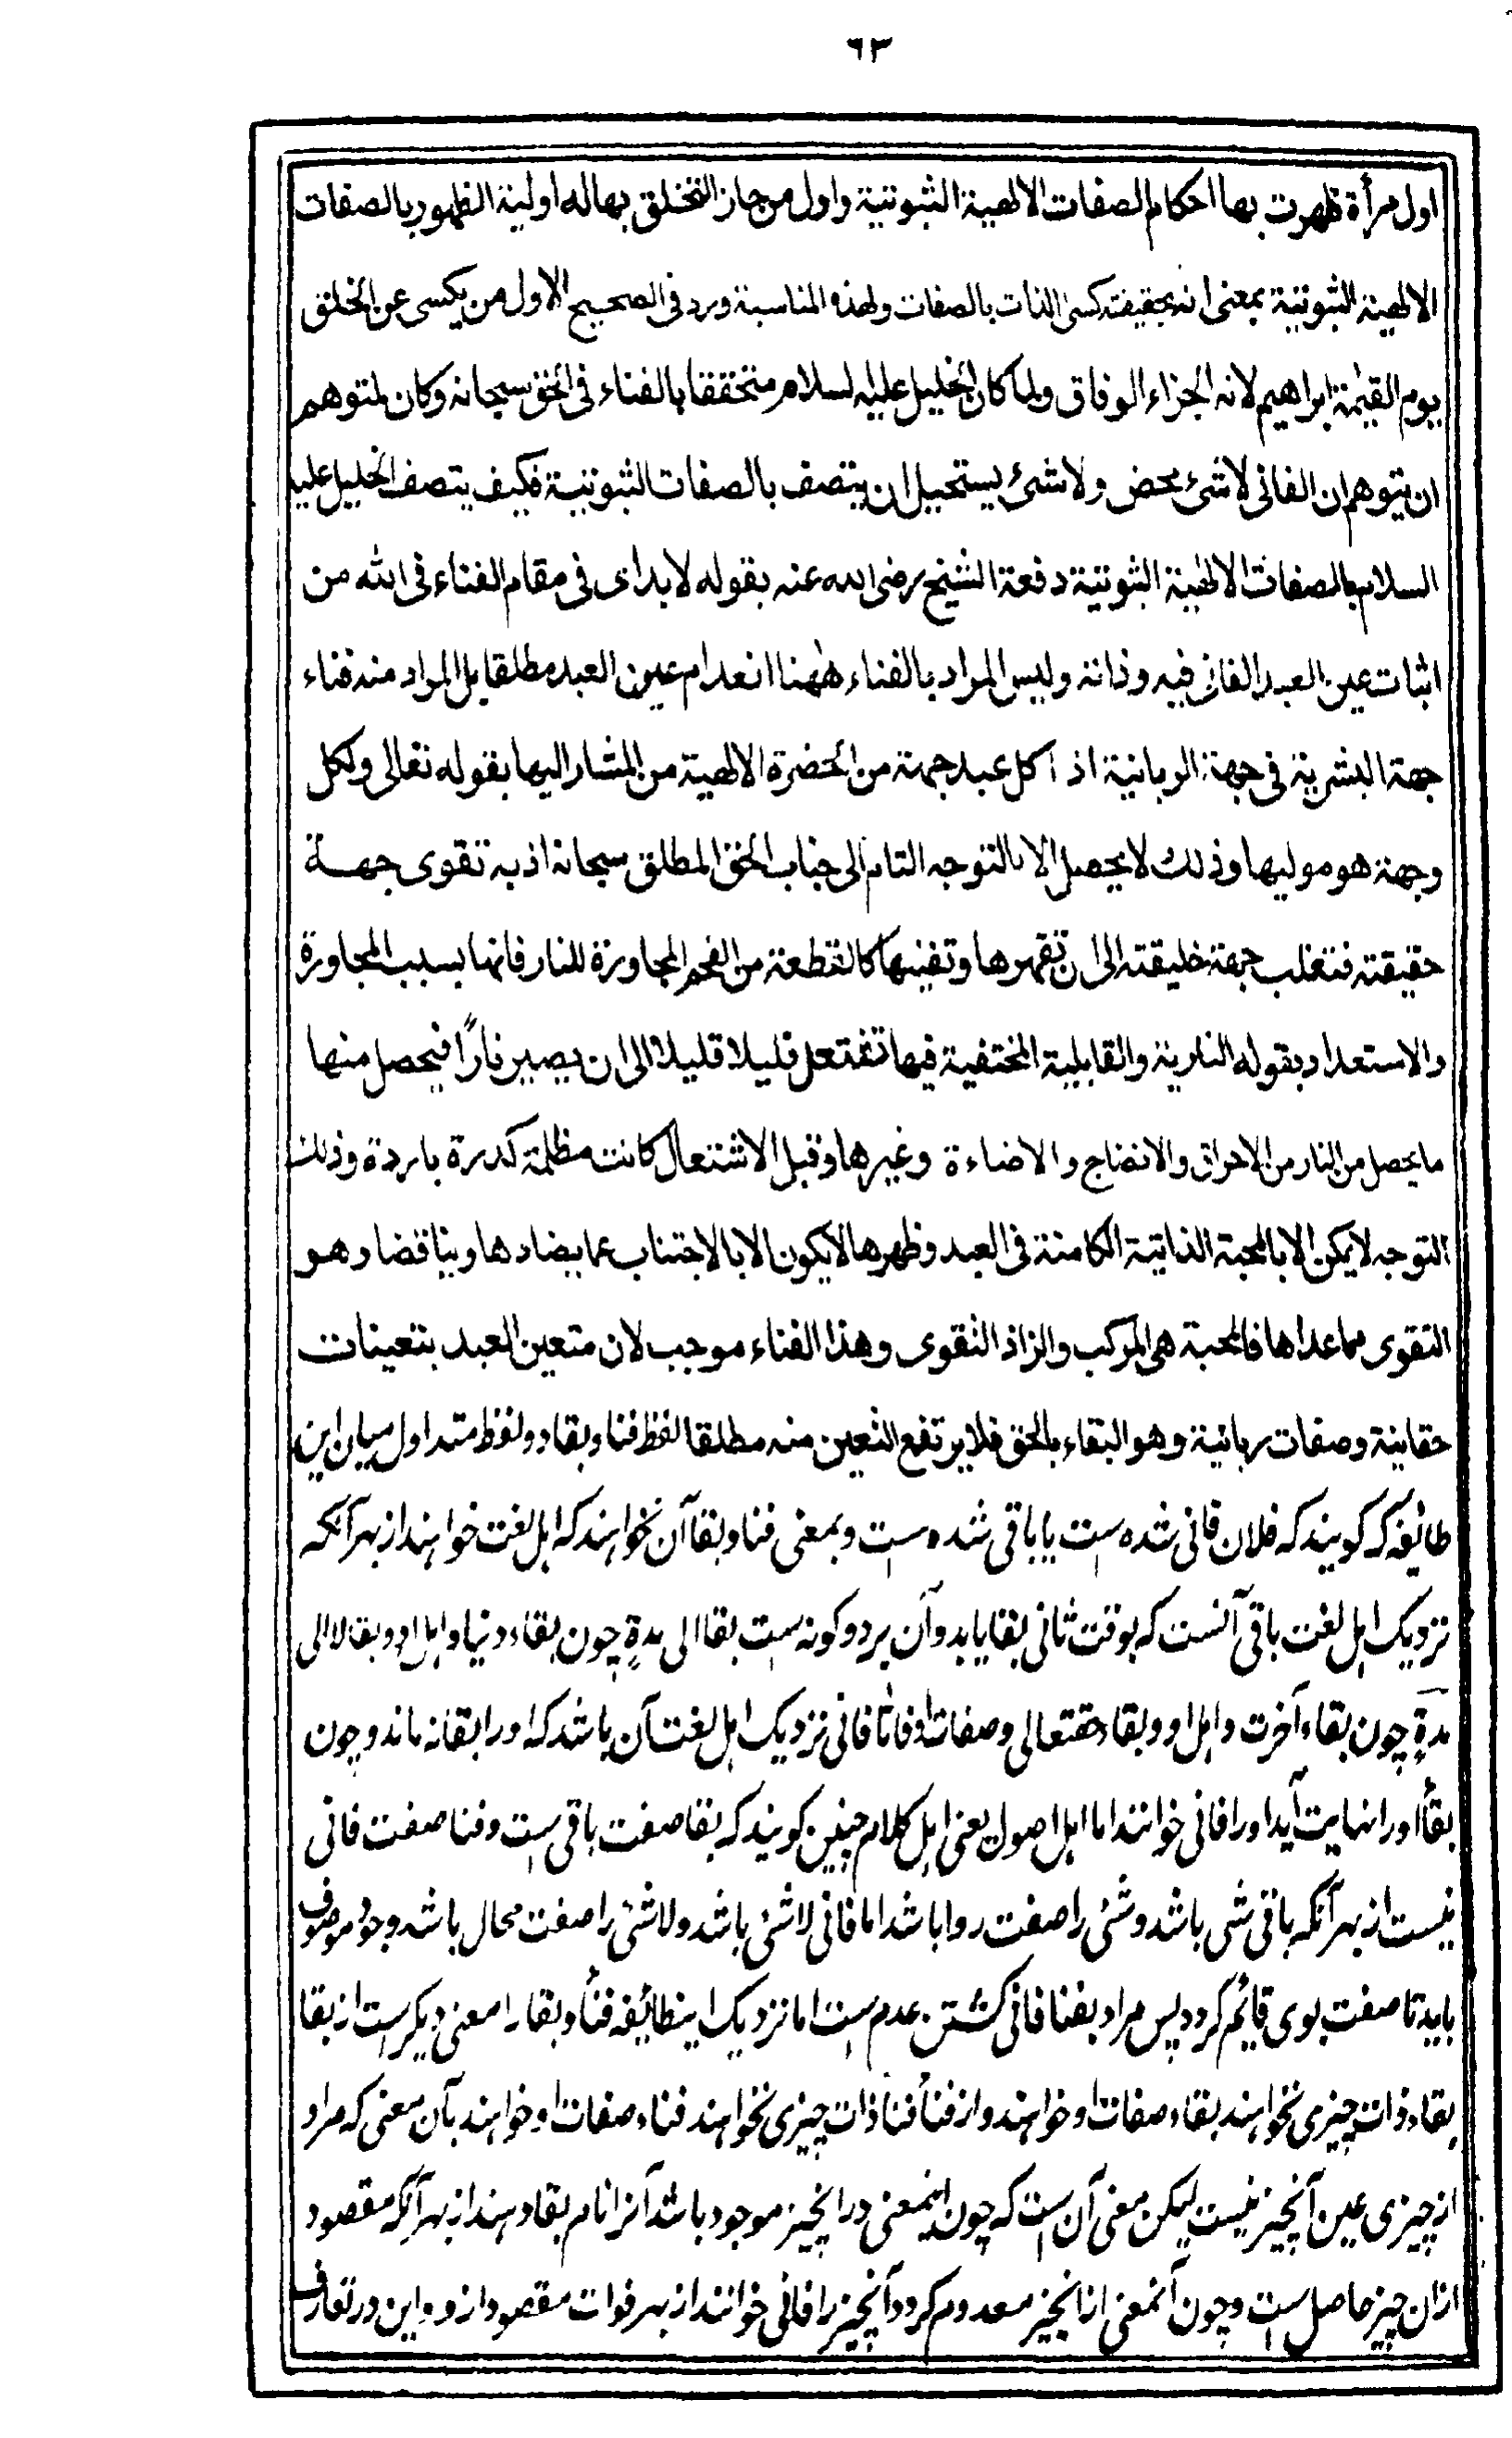 ٦٣
اول مرأة ظهرت بها احكام الصفات الالهية الثبوتية واول من جاز التخلق بها له اولية الظهور بالصفات
الالهية الثبوتية بمعنى انه بحقيقته كسى الذات بالصفات ولهذه المناسبة ورد فى الصحيح الاول من يكسى عن الخلق
يوم القيمة ابراهيم لانه الجزاء الوفاق ولما كان الخليل عليه السلام متحققا بالفناء فى الحق سبحانه وكان لمتوهم
ان يتوهم ان الفانى لاشئ محض ولاشئ يستحيل ان يتصف بالصفات الثبوتية فكيف يتصف الخليل عليه
السلام بالصفات الالهية الثبوتية دفعة الشيخ رضى الله عنه بقوله لابد اى فى مقام الفناء فى الله من
اثبات عين العبد الفانى فيه وذاته وليس المراد بالفناء ههنا انعدام عين العبد مطلقا بل المراد منه فناء
جهة البشرية فى جهة الربانية اذ لكل عبد جهة من الحضرة الالهية من المشار اليها بقوله تعالى ولكل
وجهة هو موليها وذلك لا يحصل الا بالتوجه التام الى جناب الحق المطلق سبحانه اذ به تقوى جهة
حقيقته فتغلب جهة خليقته الى ان تقهرها وتفنيها كالقطعة من الفحم المجاورة للنار فانها بسبب المجاورة
والاستعداد بقوله النارية والقابلية المختفية فيها تفتعل قليلا قليلا الى ان يصير نارًا فيحصل منها
ما يحصل من النار من الاحراق والانضاج والاضاءة وغيرها وقبل الاشتعال كانت مظلمة كدرة باردة وذلك
التوجه لا يمكن الا بالمحبة الذاتية الكامنة فى العبد وظهرها لا يكون الا بالاجتناب عما يضادها ويناقضا وهو
التقوى مما عداها فالمحبة هى المركب والزاد التقوى وهذا الفناء موجب لان متعين العبد بتعينات
حقانية وصفات ربانية وهو البقاء بالحق فلا يرتفع التعين منه مطلقا لفظ فنا و بقا دو لفظ متداول میان این
طائفه که کویند که فلان فانی شده ست یا باقی شده ست و بمعنی فنا و بقا آن نخواهند که اهل لغت خواهند از بهر آنکه
نزدیک اهل لغت باقی آنست که بوقت ثانی بقا یابد و آن بر دو کونه ست بقا الی مدةٍ چون بقاء دنیا و اهل او و بقا لا الی
مدةٍ چون بقاء آخرت و اهل او و بقاء حقتعالی و صفات او فاما فانی نزدیک اهل لغت آن باشد که او را بقا نه ماند و چون
بقأ او را نهایت آید او را فانی خوانند اما اهل اصول یعنی اهل کلام چنین کویند که بقا صفت باقی ست و فنا صفت فانی
نیست از بهر آنکه باقی شی باشد و شئی را صفت روا باشد اما فانی لاشئ باشد و لاشئ را صفت محال باشد وجود موصوف
باید تا صفت بوی قائم کردد پس مراد بفنا فانی کشتن عدم ست اما نزدیک اینطائفه فنأ و بقا را معنی دیکرست از بقا
بقاء ذات چیزی نخواهند بقاء صفات او خواهند و از فنأ فنا ذات چیزی نخواهند فناء صفات او خواهند بآن معنی که مراد
از چیزی عین آنچیز نیست لیکن معنی آن است که چون اینمعنی در انچیز موجود باشد آنرا نام بقا دهند از بهر آنکه مقصود
ازان چیز حاصل ست و چون آنمعنی از انچیز معدوم کردد آنچیز را فانی خوانند از بهر فوات مقصود ازو و این در تعارف